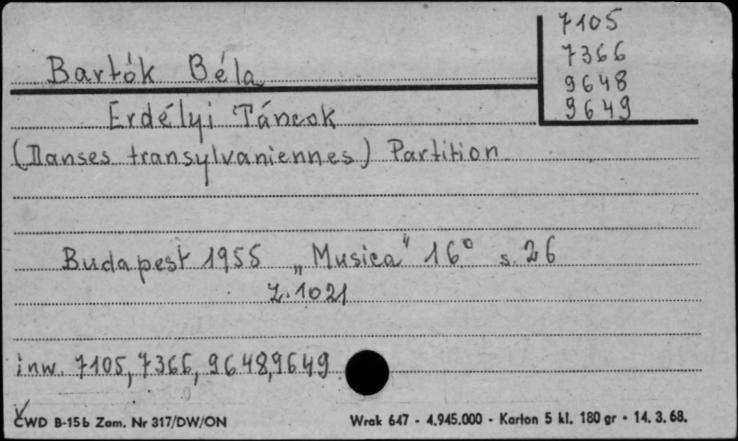 7105
7366
9648
9649
Bartók Béla
Erdélyi Táncok
(Danses transylvaniennes) Partition
Budapest 1955 „Musica" 16° s. 26
Z. 1021
inw. 7105, 7366, 9648, 9649
CWD B-15b Zam. Nr 317/DW/ON Wrak 647 - 4.945.000 - Karton 5 kl. 180 gr - 14. 3. 68.